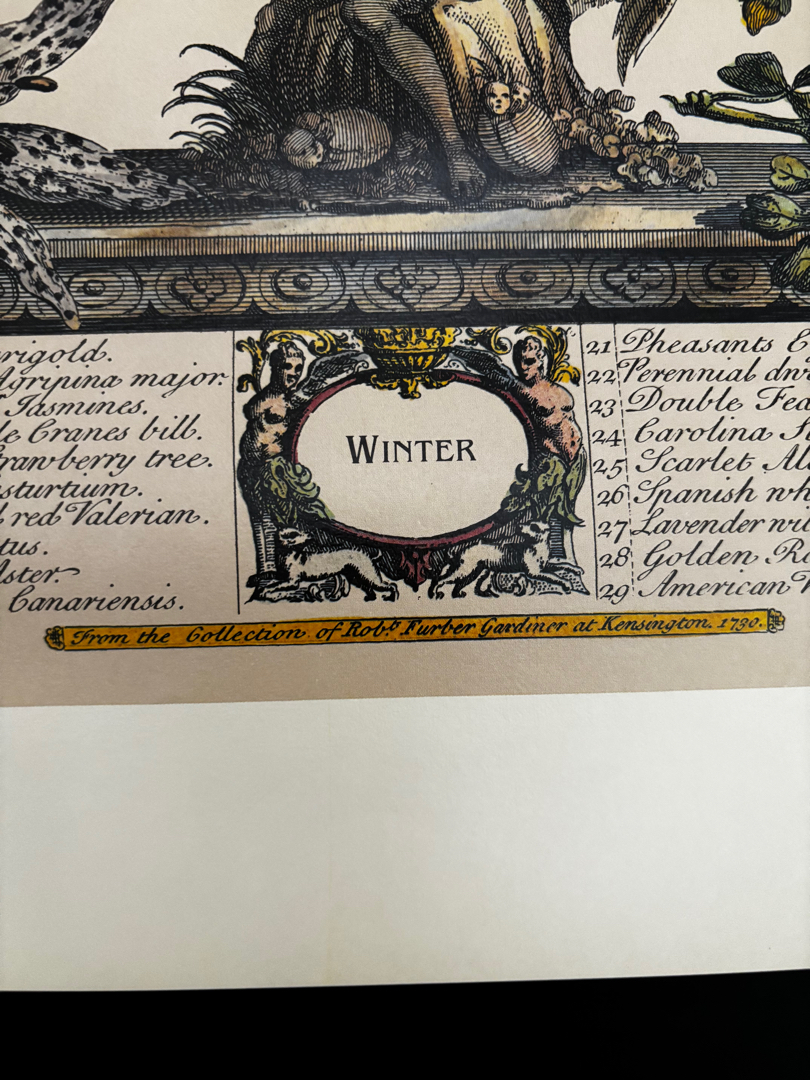 rigold.
Agripina major.
Jasmines.
le Cranes bill.
trawberry tree.
sturtium.
red Valerian.
tus.
Aster.
Canariensis.
WINTER
21 Pheasants E
22 Perennial dw
23 Double Fea
24 Carolina
25 Scarlet
26 Spanish wh
27 Lavender
28 Golden R
29 American
From the Collection of Robt. Furber Gardiner at Kensington. 1730.